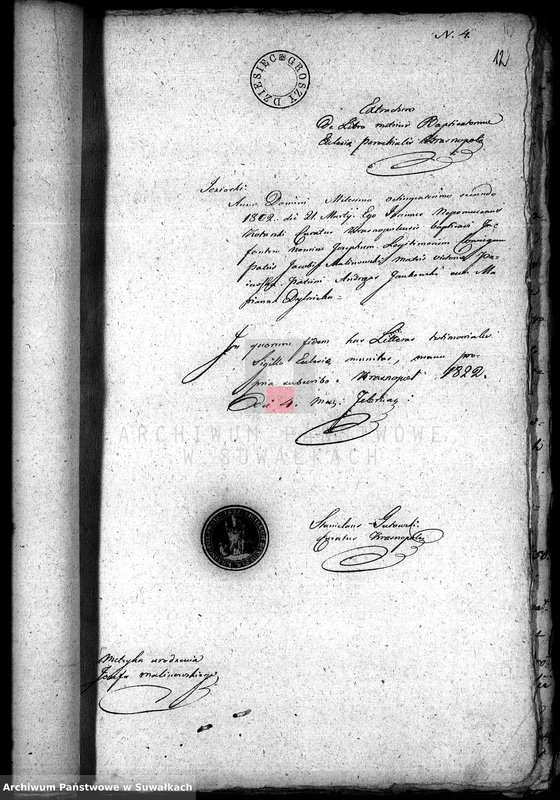 N. 4.
12
DZIESIEC GROSZY
Extractum
De Libro metrices Baptisatorum
Eclesiæ parochialis Krasnopol
Jeziorki
Anno Domini Milesimo octingentesimo secundo
1802. die 21. Martij Ego Joannes Nepomucenus
Curatus Krasnopolensis baptisavi In-
fantem nomine Josephum Legitimorum Coniugum
patris Jacobi Malinowski matris
Patrini Andrzej Jankowski cum Ma-
rianna
In quorum fidem has Litteras testimoniales
Sigillo Eclesiæ munitas, manu pro-
pria subscribo. Krasnopol 1822.
Die 4. Mens. Februar.
ARCHIWUM PAŃSTWOWE
W SUWAŁKACH
Stanislaus Gutowski
Curatus Krasnopolen
Metryka urodzenia
Józefa Malinowskiego
Archiwum Państwowe w Suwałkach